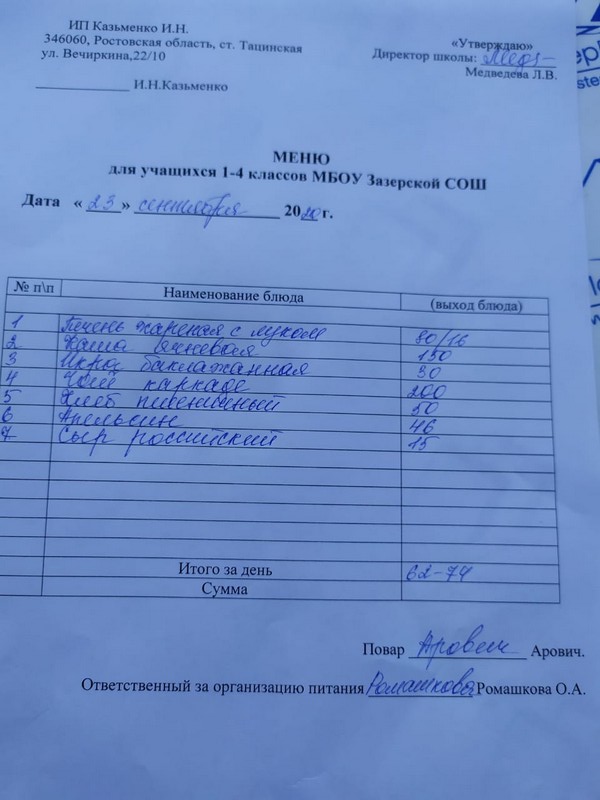 ИП Казьменко И.Н.
346060, Ростовская область, ст. Тацинская
ул. Вечиркина,22/10
И.Н.Казьменко
«Утверждаю»
Директор школы:
Медведева Л.В.
МЕНЮ
для учащихся 1-4 классов МБОУ Зазерской СОШ
Дата « 23 » сентября 2020 г.
№ п\п Наименование блюда (выход блюда)
1 Печень жареная с луком 80/16
2 Каша ячневая 150
3 Икра баклажанная 30
4 Чай каркаде 200
5 Хлеб пшеничный 50
6 Апельсин 46
7 Сыр российский 15
Итого за день 62-74
Сумма
Повар Арович.
Ответственный за организацию питания Ромашкова Ромашкова О.А.